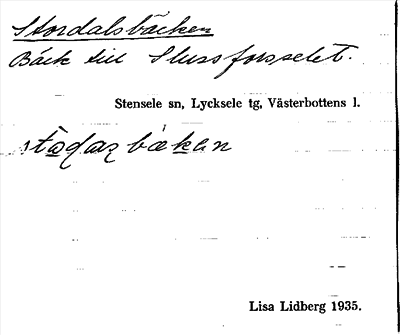 Stordalsbäcken
Bäck till Slussforsselet.
Stensele sn, Lycksele tg, Västerbottens l.
bækan
Lisa Lidberg 1935.